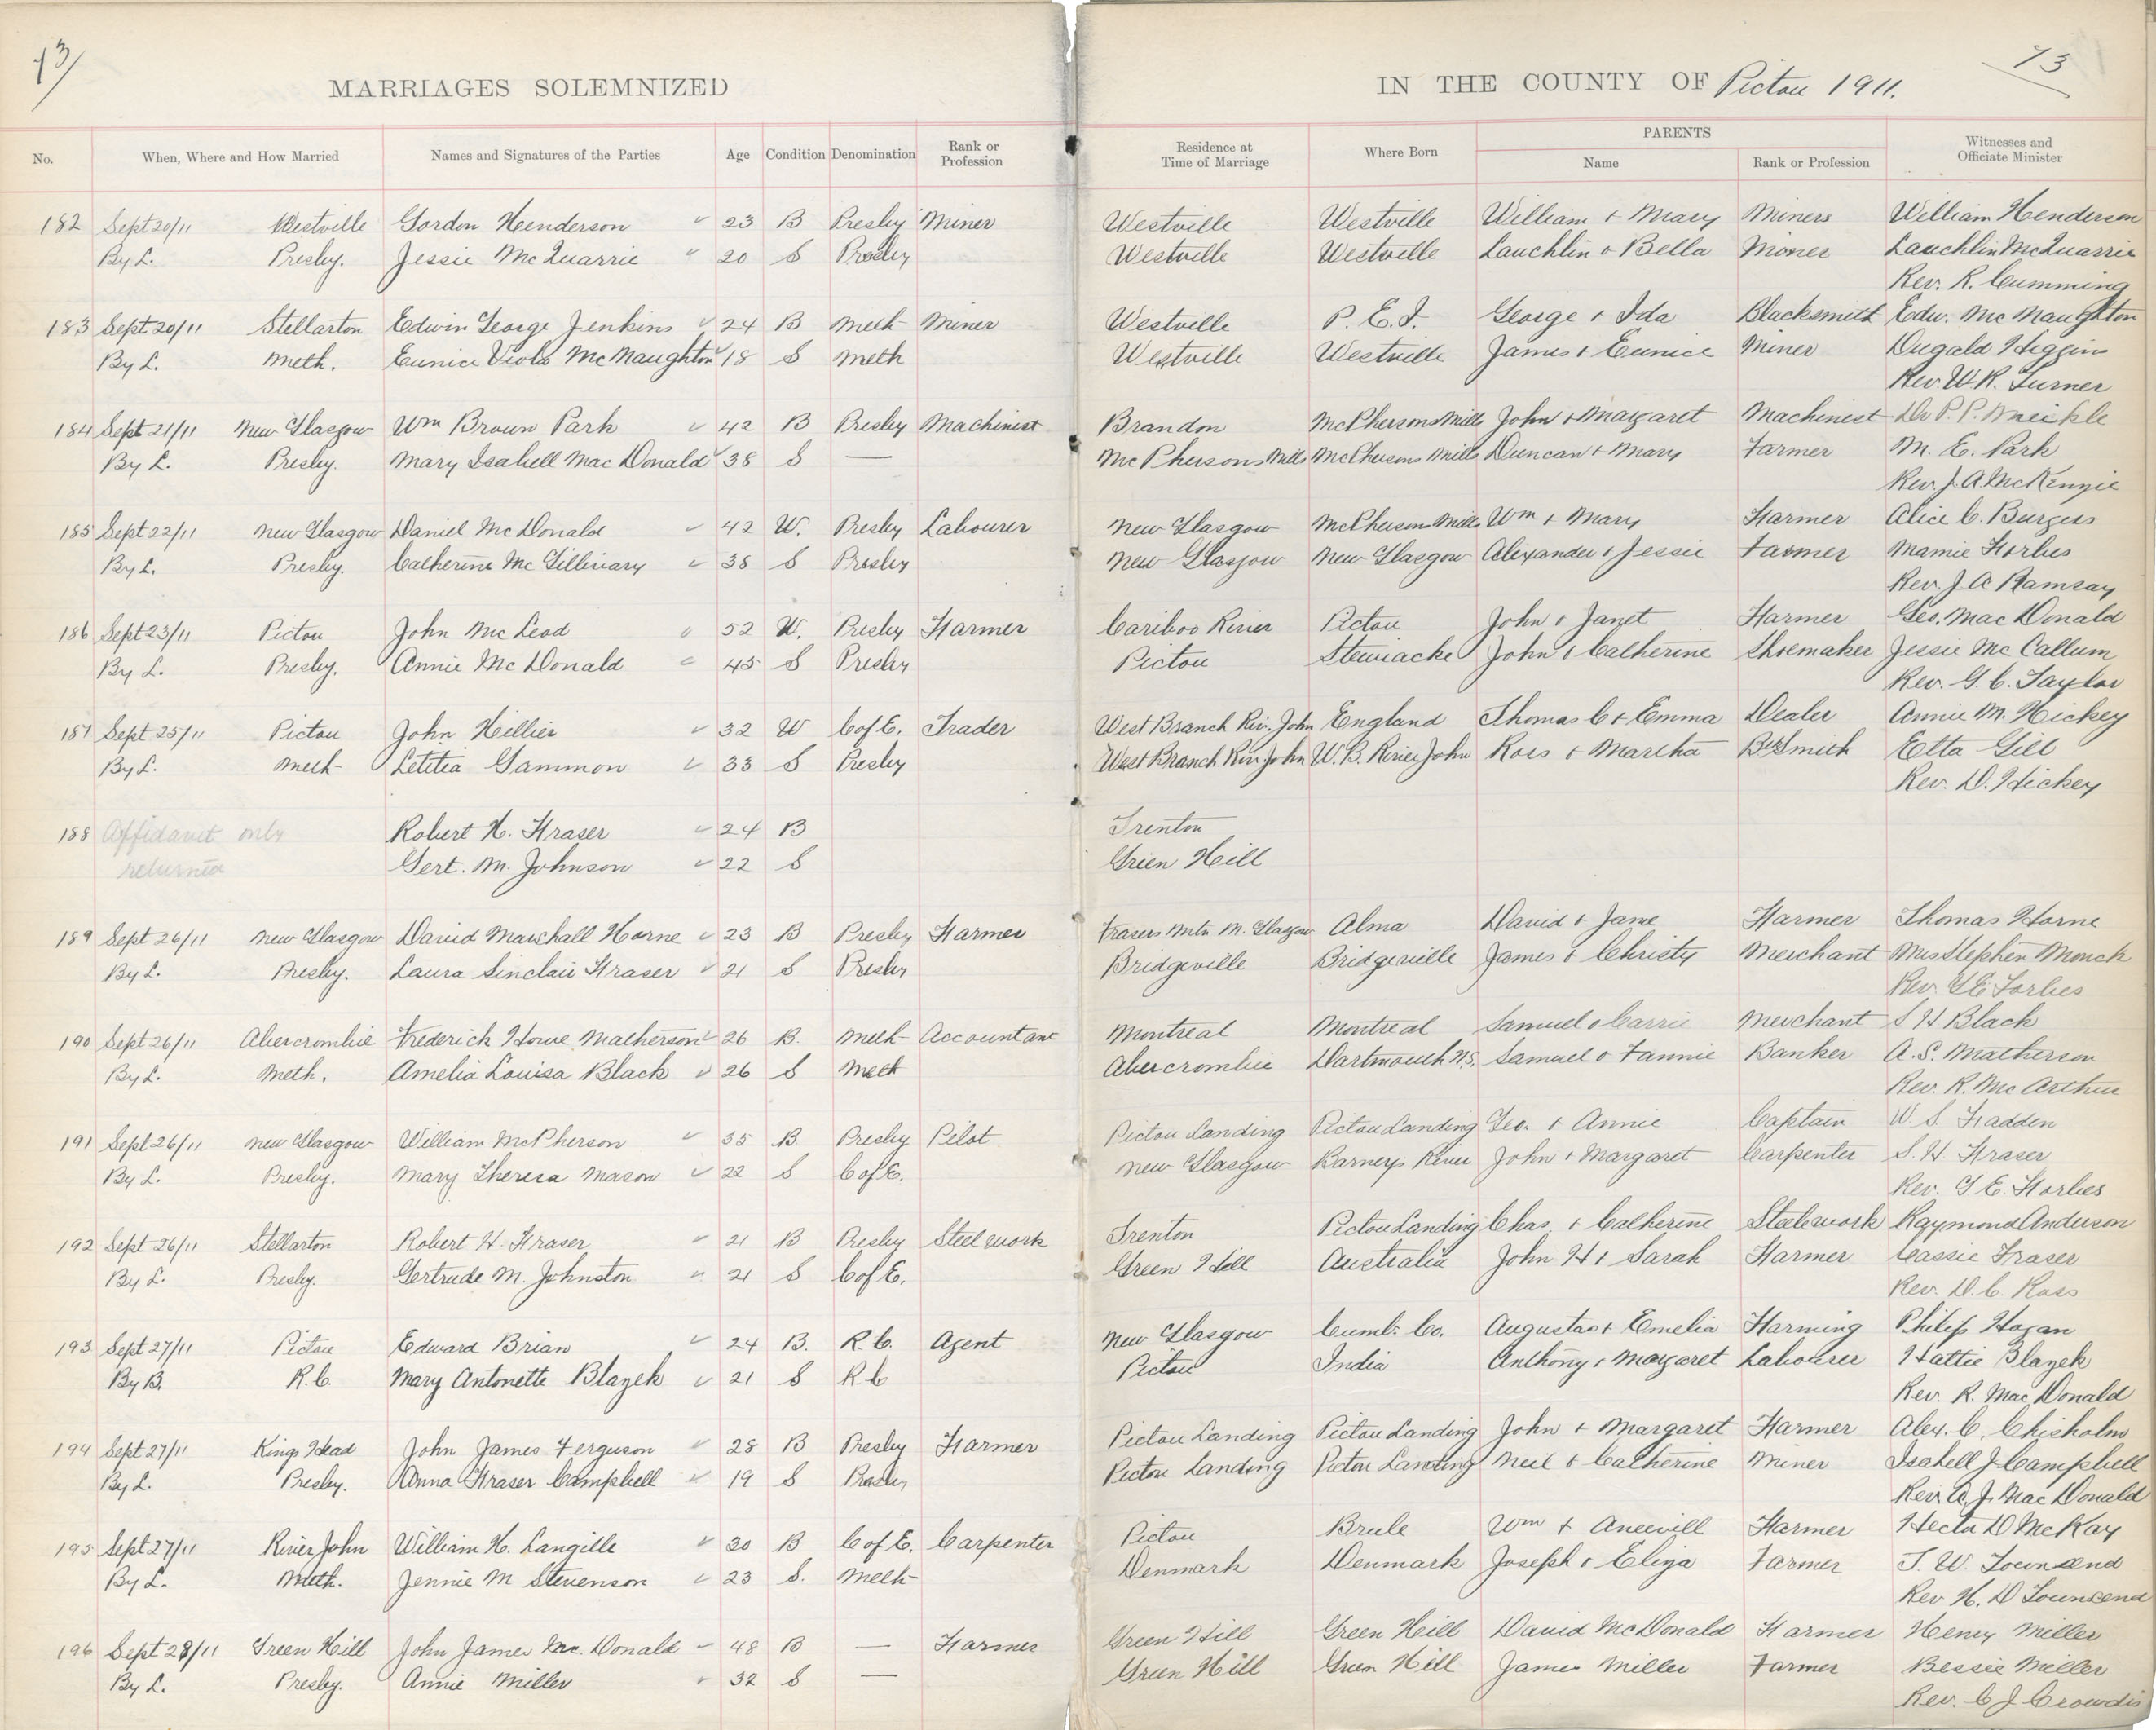 73
MARRIAGES SOLEMNIZED
IN THE COUNTY OF Pictou 1911.
73
No. When, Where and How Married Names and Signatures of the Parties Age Condition Denomination Rank or Profession Residence at Time of Marriage Where Born PARENTS Name Rank or Profession Witnesses and Officiate Minister
182 Sept 20/11 Westville Gordon Henderson 23 B Presby Miner Westville Westville William + Mary Miners William Henderson
By L. Presby. Jessie McQuarrie 20 S Presby Westville Westville Lauchlin + Bella Moner Lauchlin McQuarrie
Rev. R. Cumming
183 Sept 20/11 Stellarton Edwin George Jenkins 24 B Meth Miner Westville P. E. I. George + Ida Blacksmith Edw. McNaughton
By L. Meth. Eunice Viola McNaughton 18 S Meth Westville Westville James + Eunice Miner Dugald Higgins
Rev. W. R. Turner
184 Sept 21/11 New Glasgow Wm Brown Park 42 B Presby Machinist Brandon McPhersons Mills John + Margaret Machinist Dr P. P. Meikle
By L. Presby. Mary Isabell MacDonald 38 S — McPhersons Mills McPhersons Mills Duncan + Mary Farmer M. E. Park
Rev. J. A. McKenzie
185 Sept 22/11 New Glasgow Daniel McDonald 42 W. Presby Labourer New Glasgow McPherson Mills Wm + Mary Farmer Alice C. Burgess
By L. Presby. Catherine McGillivary 38 S Presby New Glasgow New Glasgow Alexander + Jessie Farmer Mamie Forbes
Rev. J. A Ramsay
186 Sept 23/11 Pictou John McLeod 52 W. Presby Farmer Cariboo River Pictou John + Janet Farmer Geo. MacDonald
By L. Presby. Annie McDonald 45 S Presby Pictou Stewiacke John + Catherine Shoemaker Jessie McCallum
Rev. G. C. Taylor
187 Sept 25/11 Pictou John Hillier 32 W C of E. Trader West Branch Riv. John England Thomas C + Emma Dealer Annie M. Hickey
By L. Meth Letitia Gammon 33 S Presby West Branch Riv. John W. B. River John Ross + Martha Bk Smith Etta Gill
Rev. D. Hickey
188 Affidavit only Robert H. Fraser 24 B Trenton
returned Gert. M. Johnson 22 S Green Hill
189 Sept 26/11 New Glasgow David Marshall Horne 23 B Presby Farmer Frasers Mtn N. Glasgow Alma David + Jane Farmer Thomas Horne
By L. Presby. Laura Sinclair Fraser 21 S Presby Bridgeville Bridgeville James + Christy Merchant Mrs Stephen Monck
Rev. G E Forbes
190 Sept 26/11 Abercrombie Frederick Howe Matherson 26 B. Meth Accountant Montreal Montreal Samuel + Carrie Merchant S H Black
By L. Meth. Amelia Louisa Black 26 S Meth Abercrombie Dartmouth N.S. Samuel + Fannie Banker A. S. Matherson
Rev. R. McArthur
191 Sept 26/11 New Glasgow William McPherson 35 B. Presby Pilot Pictou Landing Pictou Landing Geo. + Annie Captain W S Fadden
By L. Presby. Mary Theresa Mason 22 S C of E. New Glasgow Barneys River John + Margaret Carpenter S. H. Fraser
Rev. G E. Forbes
192 Sept 26/11 Stellarton Robert H. Fraser 21 B Presby Steel work Trenton Pictou Landing Chas. + Catherine Steelwork Raymond Anderson
By L. Presby. Gertrude M. Johnston 21 S C of E. Green Hill Australia John H + Sarah Farmer Cassie Fraser
Rev. D. C. Ross
193 Sept 27/11 Pictou Edward Brian 24 B. R. C. Agent New Glasgow Cumb. Co. Augustas + Emelia Farming Philip Hogan
By B. R. C. Mary Antonette Blazek 21 S R C Pictou India Anthony + Margaret Labourer Hattie Blazek
Rev. R. MacDonald
194 Sept 27/11 Kings Head John James Ferguson 28 B Presby Farmer Pictou Landing Pictou Landing John + Margaret Farmer Alex. C. Chisholm
By L. Presby. Anna Fraser Campbell 19 S Presby Pictou Landing Pictou Landing Neil + Catherine Miner Isabell J Campbell
Rev. A. J. MacDonald
195 Sept 27/11 River John William H. Langille 30 B C of E. Carpenter Pictou Brule Wm + Farmer Hector D McKay
By L. Meth. Jennie M Stevenson 23 S. Meth Denmark Denmark Joseph + Eliza Farmer J. W. Townsend
Rev. H. D Townsend
196 Sept 28/11 Green Hill John James McDonald 48 B — Farmer Green Hill Green Hill David McDonald Farmer Henry Miller
By L. Presby. Annie Miller 32 S — Green Hill Green Hill James Miller Farmer Bessie Miller
Rev. C J Crowdis